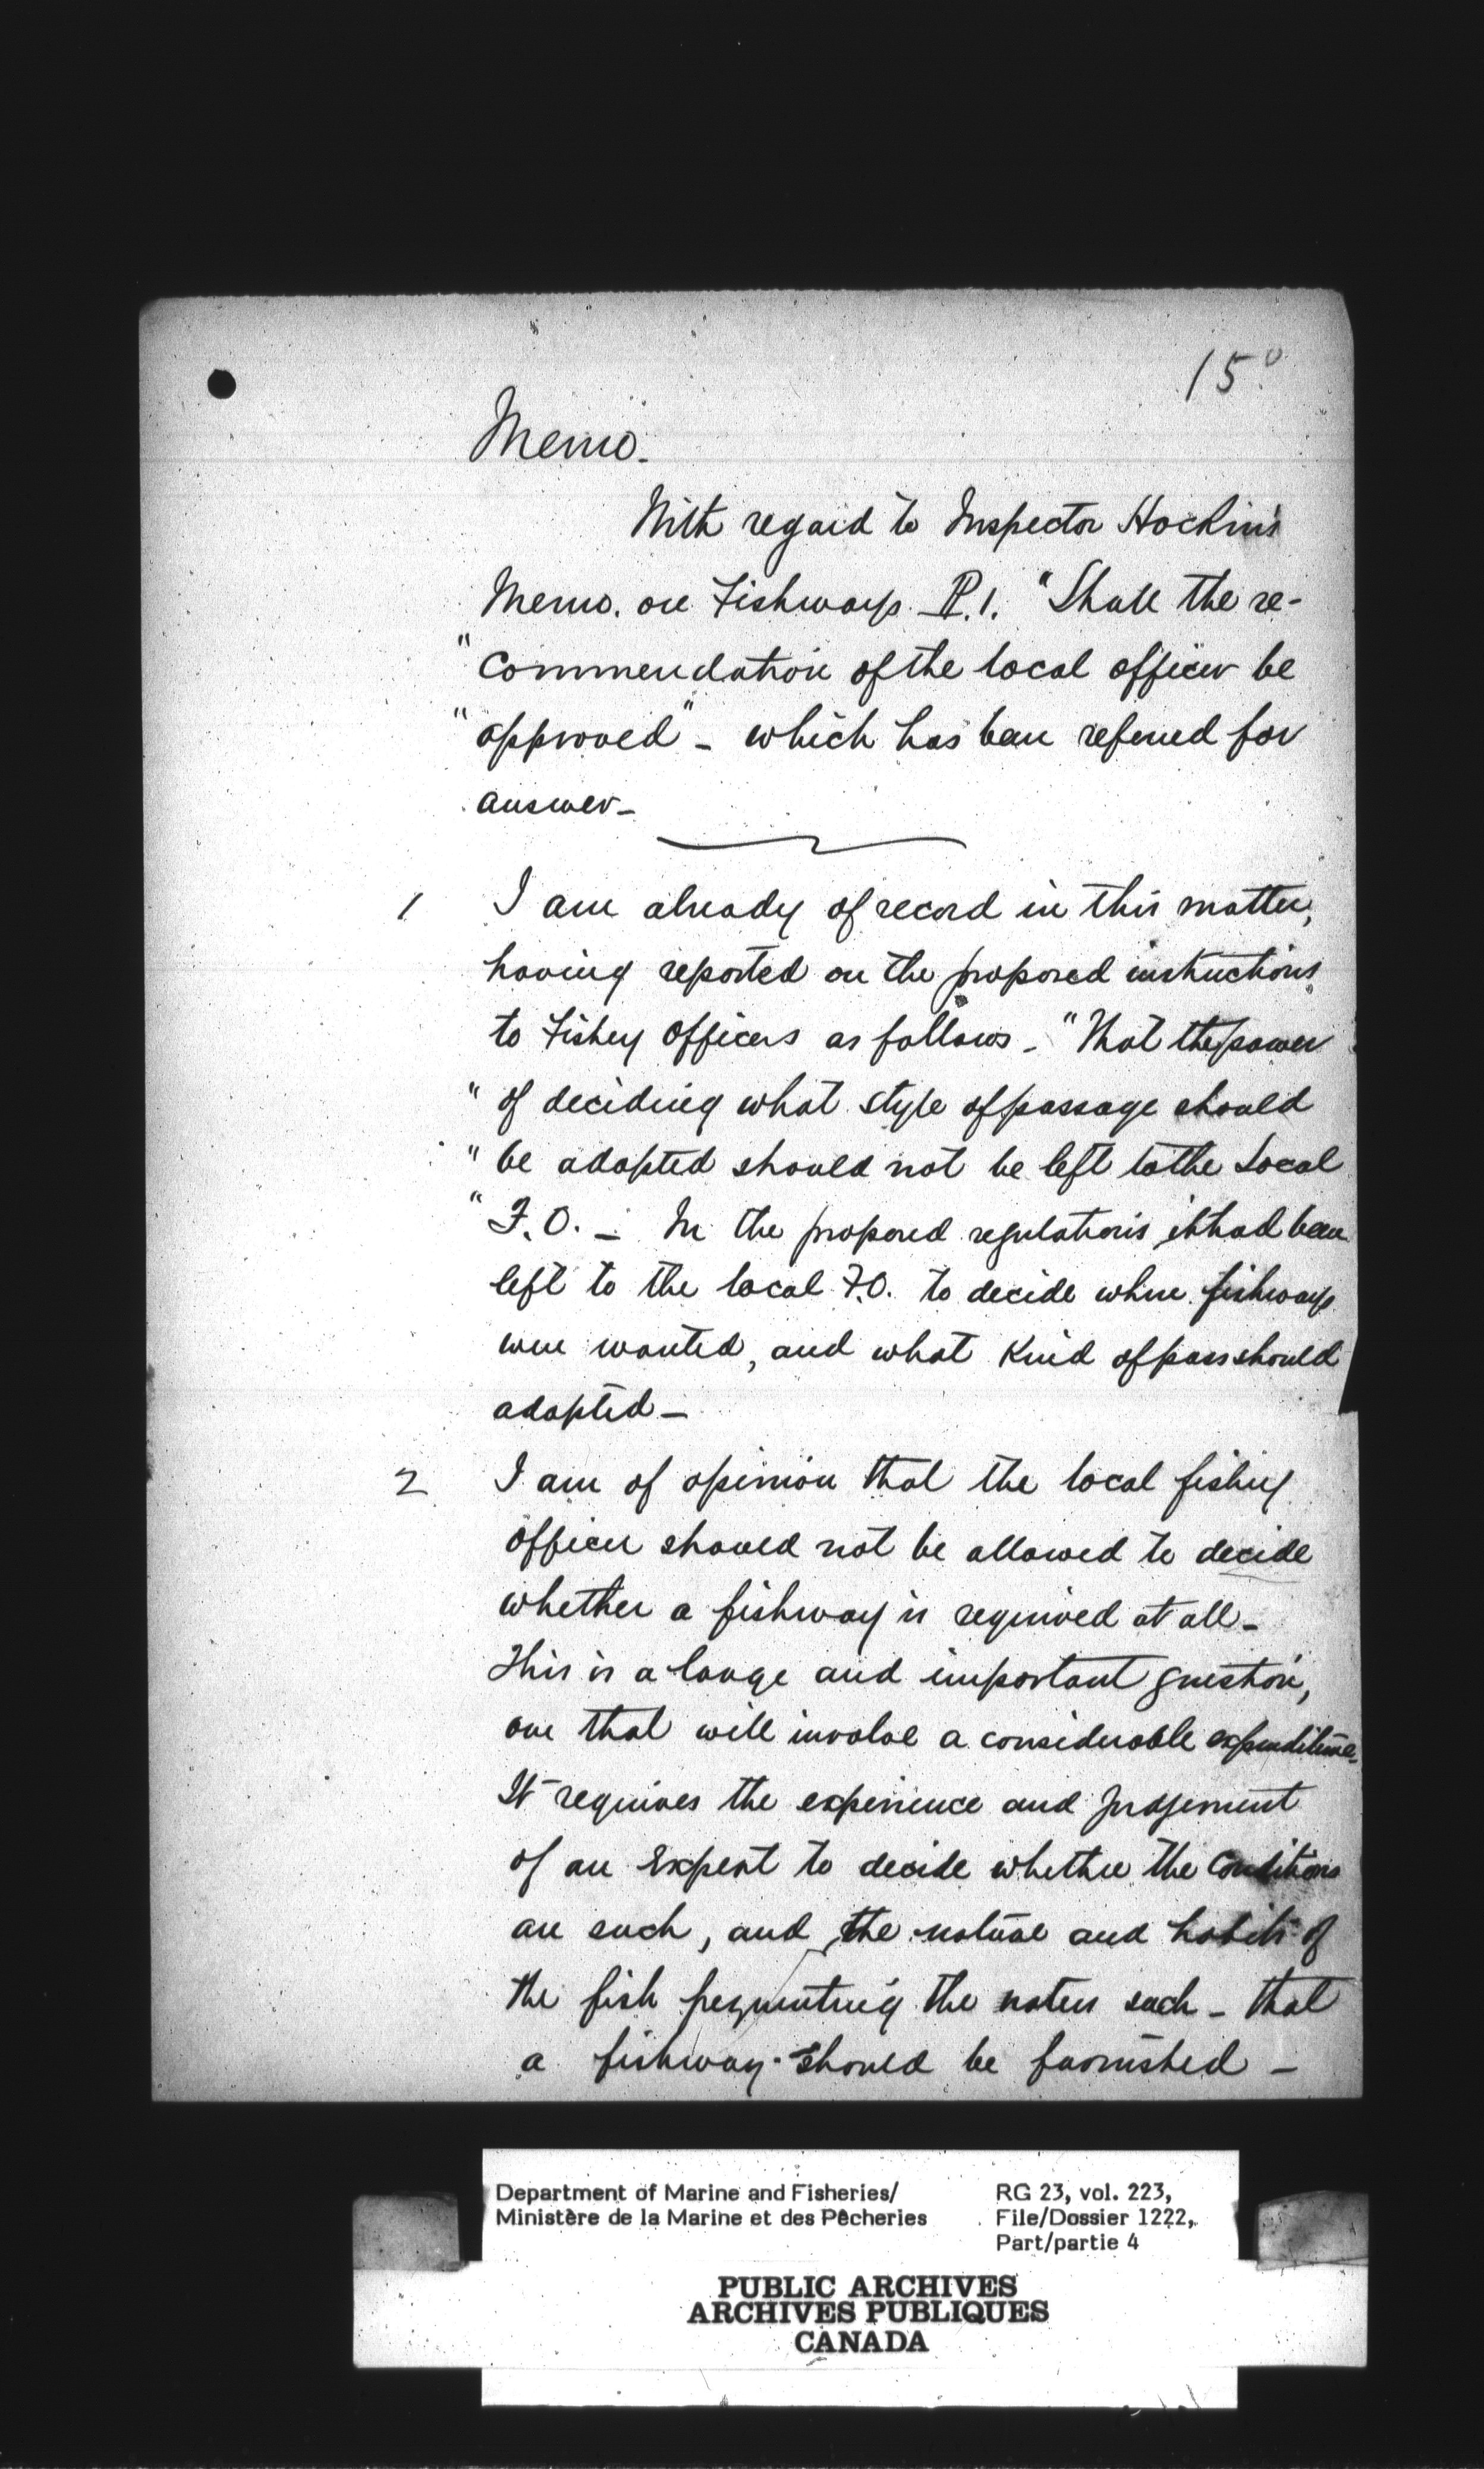 150
Memo.
With regard to Inspector Hockin's
Memo. on Fishways P.1. "Shall the re-
"commendation of the local officer be
"approved" - which has been referred for
answer -
1 I am already of record in this matter,
having reported on the proposed instructions
to Fishery Officers as follows - "That the power
"of deciding what style of passage should
"be adopted should not be left to the Local
"F.O. - In the proposed regulations it had been
left to the local F.O. to decide where fishways
were wanted, and what kind of pass should
adopted -
2 I am of opinion that the local fishery
officer should not be allowed to decide
whether a fishway is required at all -
This is a large and important question,
one that will involve a considerable expenditure.
It requires the experience and judgement
of an Expert to decide whether the conditions
are such, and the nature and habits of
the fish frequenting the waters such - that
a fishway should be furnished -
Department of Marine and Fisheries/
Ministère de la Marine et des Pêcheries
RG 23, vol. 223,
File/Dossier 1222,
Part/partie 4
PUBLIC ARCHIVES
ARCHIVES PUBLIQUES
CANADA